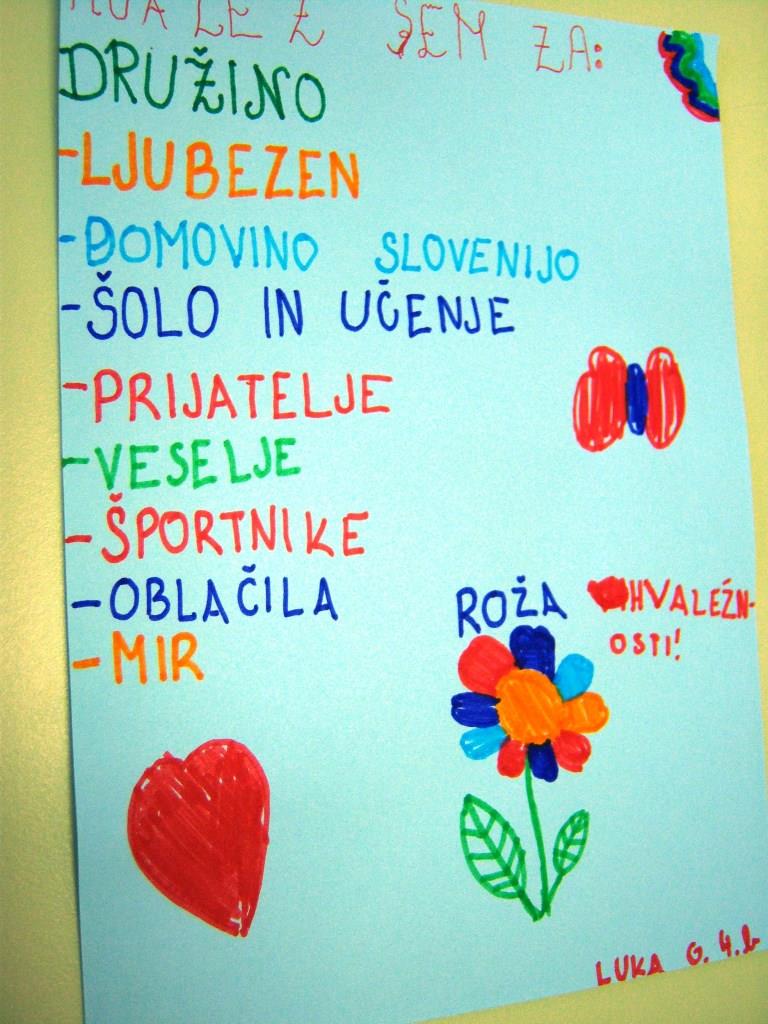 SEM ZA:
DRUŽINO
-LJUBEZEN
-DOMOVINO SLOVENIJO
-ŠOLO IN UČENJE
-PRIJATELJE
-VESELJE
-ŠPORTNIKE
-OBLAČILA
-MIR
ROŽA HVALEŽN-
OSTI!
LUKA G. 4.b